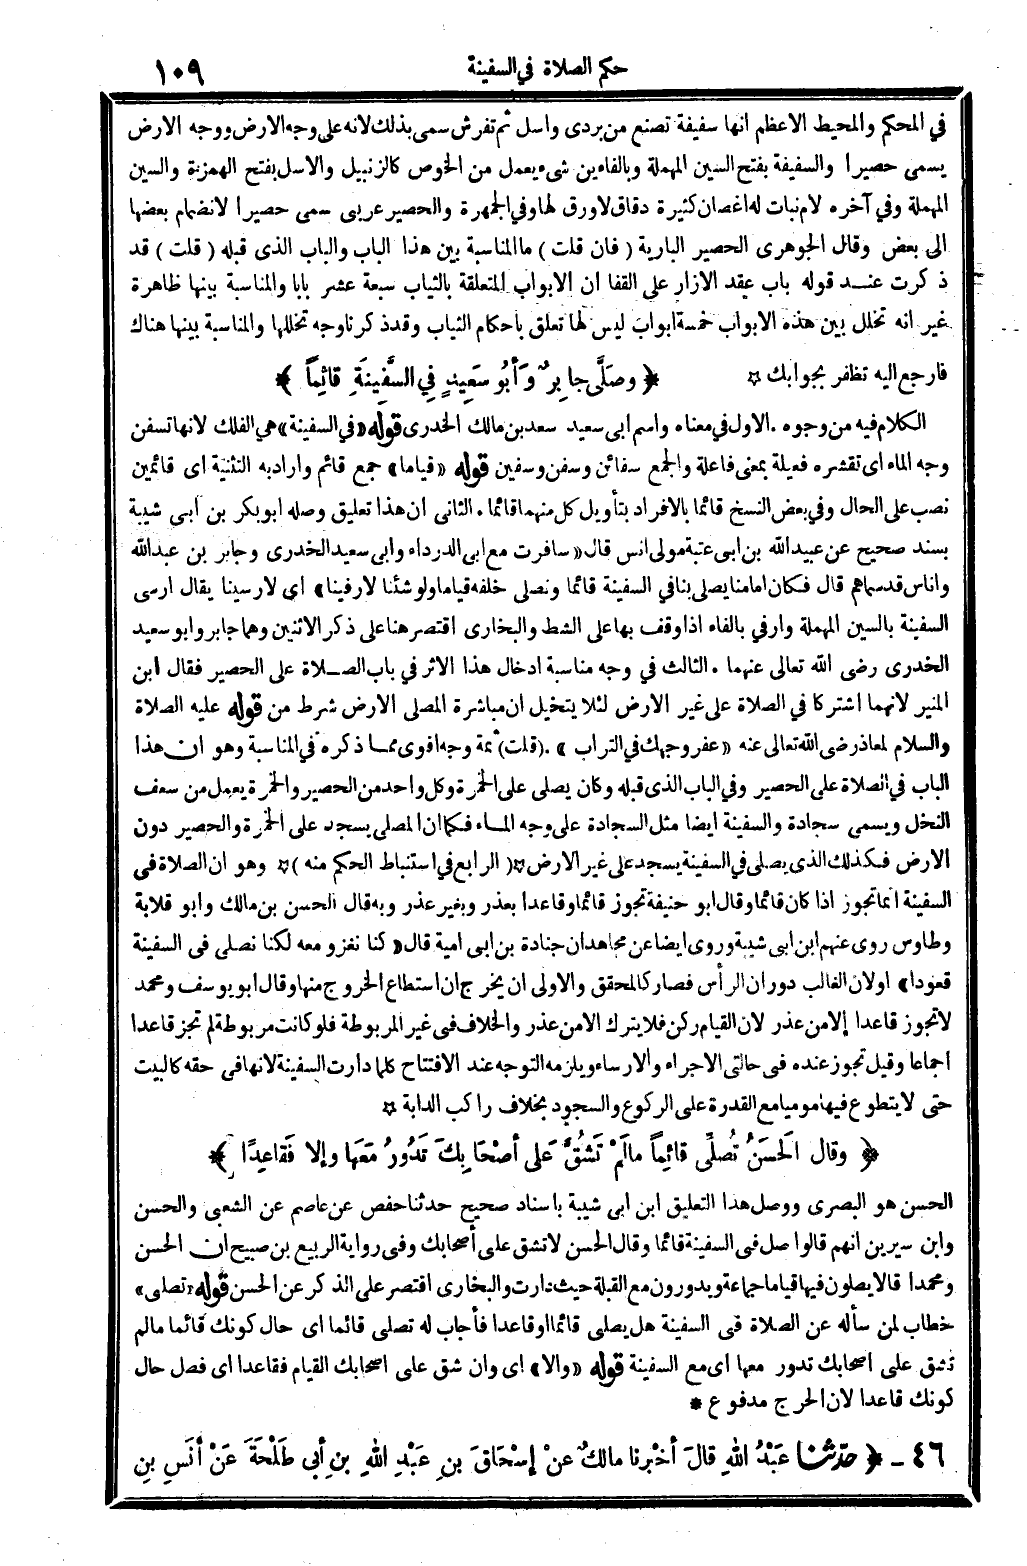 حكم الصلاة في السفينة ١٠٩
في المحكم والمحيط الاعظم انها سفيفة تصنع من بردى واسل ثم تفرش سمى بذلك لانه على وجه الارض ووجه الارض
يسمى حصيرا والسفيفة بفتح السين المهملة وبالفاءين شىء يعمل من الخوص كالزنبيل والاسل بفتح الهمزة والسين
المهملة وفي آخره لام نبات له اغصان كثيرة دقاق لاورق لها وفي الجمهرة والحصير عربى سمى حصيرا لانضمام بعضها
الى بعض وقال الجوهرى الحصير البارية ( فان قلت ) ما المناسبة بين هذا الباب والباب الذى قبله ( قلت ) قد
ذكرت عند قوله باب عقد الازار على القفا ان الابواب المتعلقة بالثياب سبعة عشر بابا والمناسبة بينها ظاهرة
غير انه تخلل بين هذه الابواب خمسة ابواب ليس لها تعلق باحكام الثياب وقد ذكرنا وجه تخللها والمناسبة بينها هناك
فارجع اليه تظفر بجوابك ☆ ﴿ وصَلَّى جابِرٌ وَأَبُو سَعِيدٍ فِي السَّفِينَةِ قائِماً ﴾
الكلام فيه من وجوه . الاول في معناه واسم ابى سعيد سعد بن مالك الخدرى قوله «في السفينة» هي الفلك لانها تسفن
وجه الماء اى تقشره فعيلة بمعنى فاعلة والجمع سفائن وسفن وسفين قوله «قياما» جمع قائم واراد به التثنية اى قائمين
نصب على الحال وفي بعض النسخ قائما بالافراد بتأويل كل منهما قائما . الثانى ان هذا تعليق وصله ابو بكر بن أبى شيبة
بسند صحيح عن عبيد الله بن ابى عتبة مولى انس قال «سافرت مع ابى الدرداء وابى سعيد الخدرى وجابر بن عبد الله
واناس قد سماهم قال فكان امامنا يصلى بنا في السفينة قائما ونصلى خلفه قياما ولو شئنا لارفينا» اى لارسينا يقال ارسى
السفينة بالسين المهملة وارفي بالفاء اذا وقف بها على الشط والبخارى اقتصر هنا على ذكر الاثنين وهما جابر وابو سعيد
الخدرى رضى الله تعالى عنهما . الثالث في وجه مناسبة ادخال هذا الاثر في باب الصلاة على الحصير فقال ابن
المنير لانهما اشتركا في الصلاة على غير الارض لئلا يتخيل ان مباشرة المصلى الارض شرط من قوله عليه الصلاة
والسلام لمعاذ رضى الله تعالى عنه «عفر وجهك في التراب» . (قلت) ثمة وجه اقوى مما ذكره في المناسبة وهو ان هذا
الباب في الصلاة على الحصير وفي الباب الذى قبله وكان يصلى على الخمرة وكل واحد من الحصير والخمرة يعمل من سعف
النخل ويسمى سجادة والسفينة ايضا مثل السجادة على وجه الماء فكما ان المصلى يسجد على الخمرة والحصير دون
الارض فكذلك الذى يصلى في السفينة يسجد على غير الارض ☆ ( الرابع في استنباط الحكم منه ) ☆ وهو ان الصلاة فى
السفينة انما تجوز اذا كان قائما وقال ابو حنيفة تجوز قائما وقاعدا بعذر وبغير عذر وبه قال الحسن بن مالك وابو قلابة
وطاوس روى عنهم ابن ابى شيبة وروى ايضا عن مجاهد ان جنادة بن ابى امية قال «كنا نغزو معه لكنا نصلى فى السفينة
قعودا» اولان الغالب دوران الرأس فصار كالمحقق والاولى ان يخرج ان استطاع الخروج منها وقال ابو يوسف ومحمد
لا تجوز قاعدا إلا من عذر لان القيام ركن فلا يترك الا من عذر والخلاف فى غير المربوطة فلو كانت مربوطة لم تجز قاعدا
اجماعا وقيل تجوز عنده فى حالتى الاجراء والارساء ويلزمه التوجه عند الافتتاح كلما دارت السفينة لانها فى حقه كالبيت
حتى لا يتطوع فيها موميا مع القدرة على الركوع والسجود بخلاف راكب الدابة ☆
﴿ وقال الحَسَنُ تُصلِّى قائِماً مالَمْ تَشُقَّ عَلى أصْحَابِكَ تَدُورُ مَعَها وإلا فَقَاعِدًا ﴾
الحسن هو البصرى ووصل هذا التعليق ابن ابى شيبة باسناد صحيح حدثنا حفص عن عاصم عن الشعبى والحسن
وابن سيرين انهم قالوا صل فى السفينة قائما وقال الحسن لا تشق على أصحابك وفى رواية الربيع بن صبيح ان الحسن
ومحمدا قالا يصلون فيها قياما جماعة ويدورون مع القبلة حيث دارت والبخارى اقتصر على الذكر عن الحسن قوله «تصلى»
خطاب لمن سأله عن الصلاة فى السفينة هل يصلى قائما او قاعدا فأجاب له تصلى قائما اى حال كونك قائما مالم
تشق على اصحابك تدور معها اى مع السفينة قوله «والا» اى وان شق على اصحابك القيام فقاعدا اى فصل حال
كونك قاعدا لان الحرج مدفوع *
٤٦ ـ ﴿ حدّثنا عَبْدُ اللهِ قالَ أخْبرنا مالكٌ عنْ إسْحَاقَ بنِ عَبْدِ اللهِ بنِ أبى طَلْحَةَ عَنْ أنَسِ بنِ